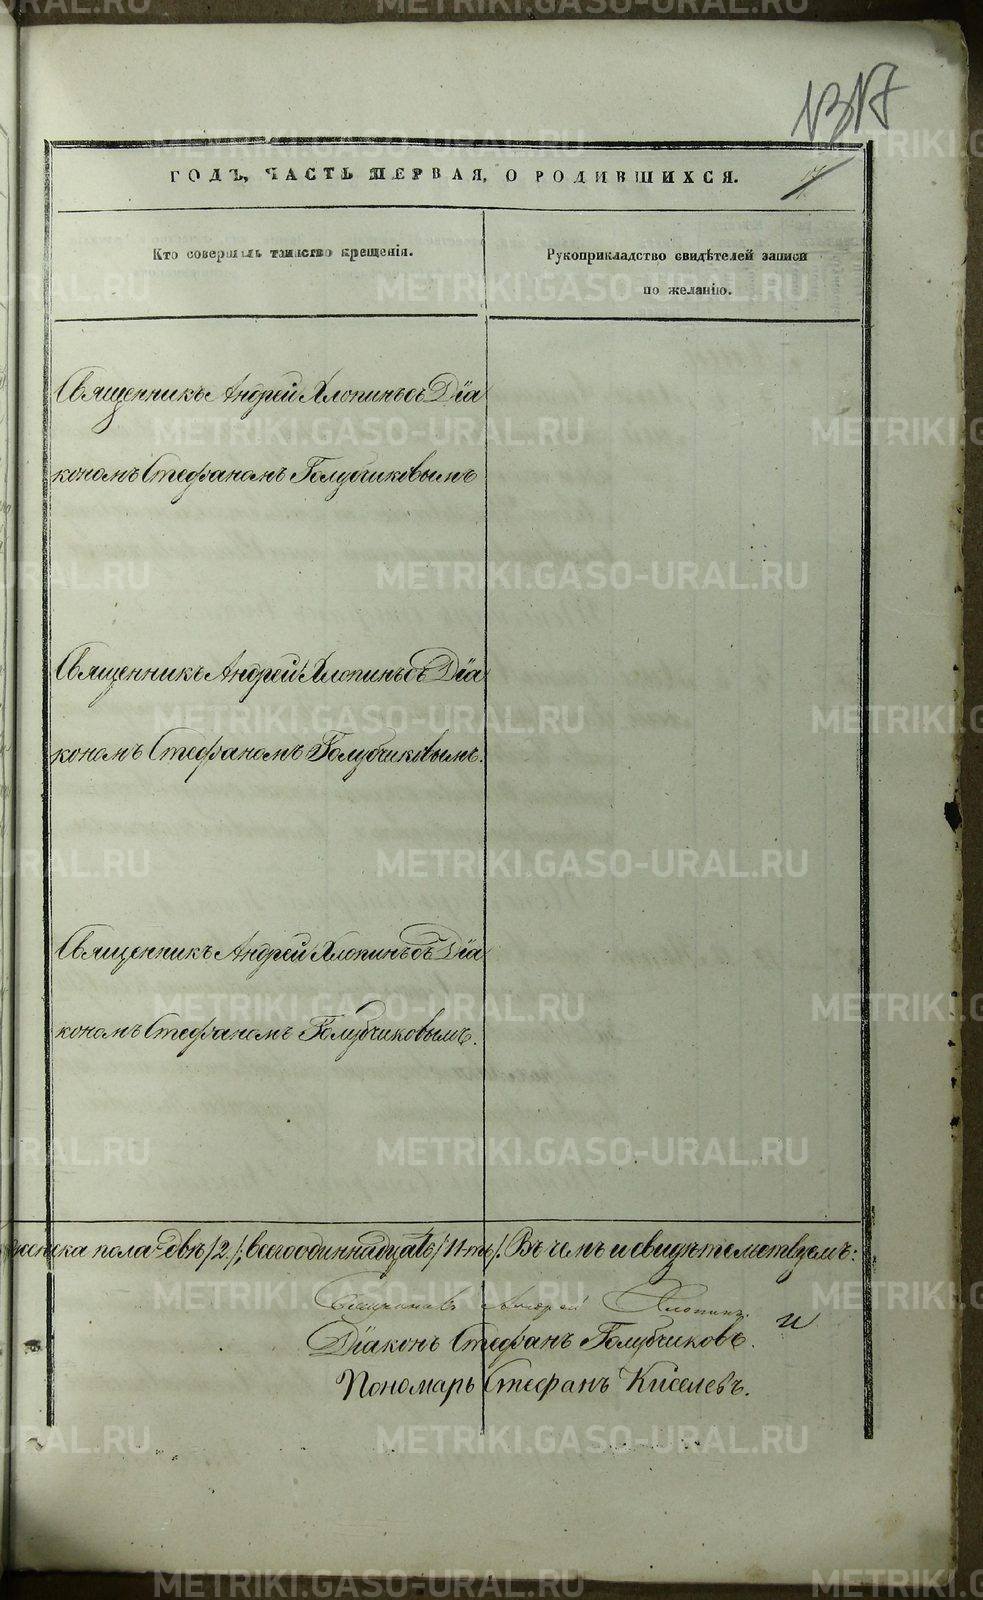 1317
ГОДЪ, ЧАСТЬ ПЕРВАЯ, О РОДИВШИХСЯ.
Кто совершалъ таинство крещенія.
Рукоприкладство свидѣтелей записи
по желанію.
Священникъ Андрей Хлопинъ съ Діа
кономъ Стефаномъ Голубчиковымъ
Священникъ Андрей Хлопинъ съ Діа
кономъ Стефаномъ Голубчиковымъ.
Священникъ Андрей Хлопинъ съ Діа
кономъ Стефаномъ Голубчиковымъ.
женска пола двѣ /2./, всего одиннадцать /11-ть/. Въ чемъ и свидѣтельствуемъ:
Священникъ Андрей Хлопинъ. и
Діаконъ Стефанъ Голубчиковъ.
Пономарь Стефанъ Киселевъ.
METRIKI.GASO-URAL.RU